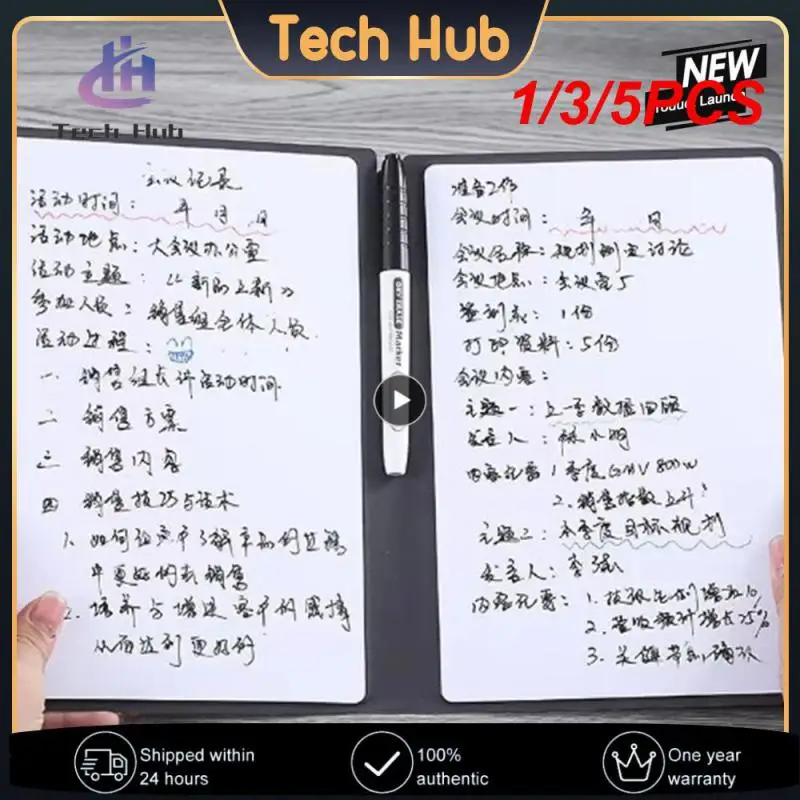 Tech Hub
NEW
Product Launch
1/3/5PCS
Tech Hub
会议记录
活动时间: 年 月 日
活动地点: 大会议办公室
活动主题: 以新的上新
参加人员: 销售组全体人员
活动过程:
一 销售组长讲活动时间
二 销售方案
三 销售内容
四 销售技巧与话术
1. 如何
2. 培养与增进客户的感情
从而达到更好的
准备工作
会议时间: 年 日
会议名称: 规划制定讨论
会议地点: 会议室5
签到表: 1份
打印资料: 5份
会议内容:
主题一: 上一季数据回顾
发言人: 林小明
内容记要 1. 季度GMV 800W
2. 销售指数上升
主题二: 本季度目标规划
发言人: 李强
内容记要: 1.
2. 营收预计增长25%
3.
DRY ERASE Marker
Shipped within
24 hours
100%
authentic
One year
warranty